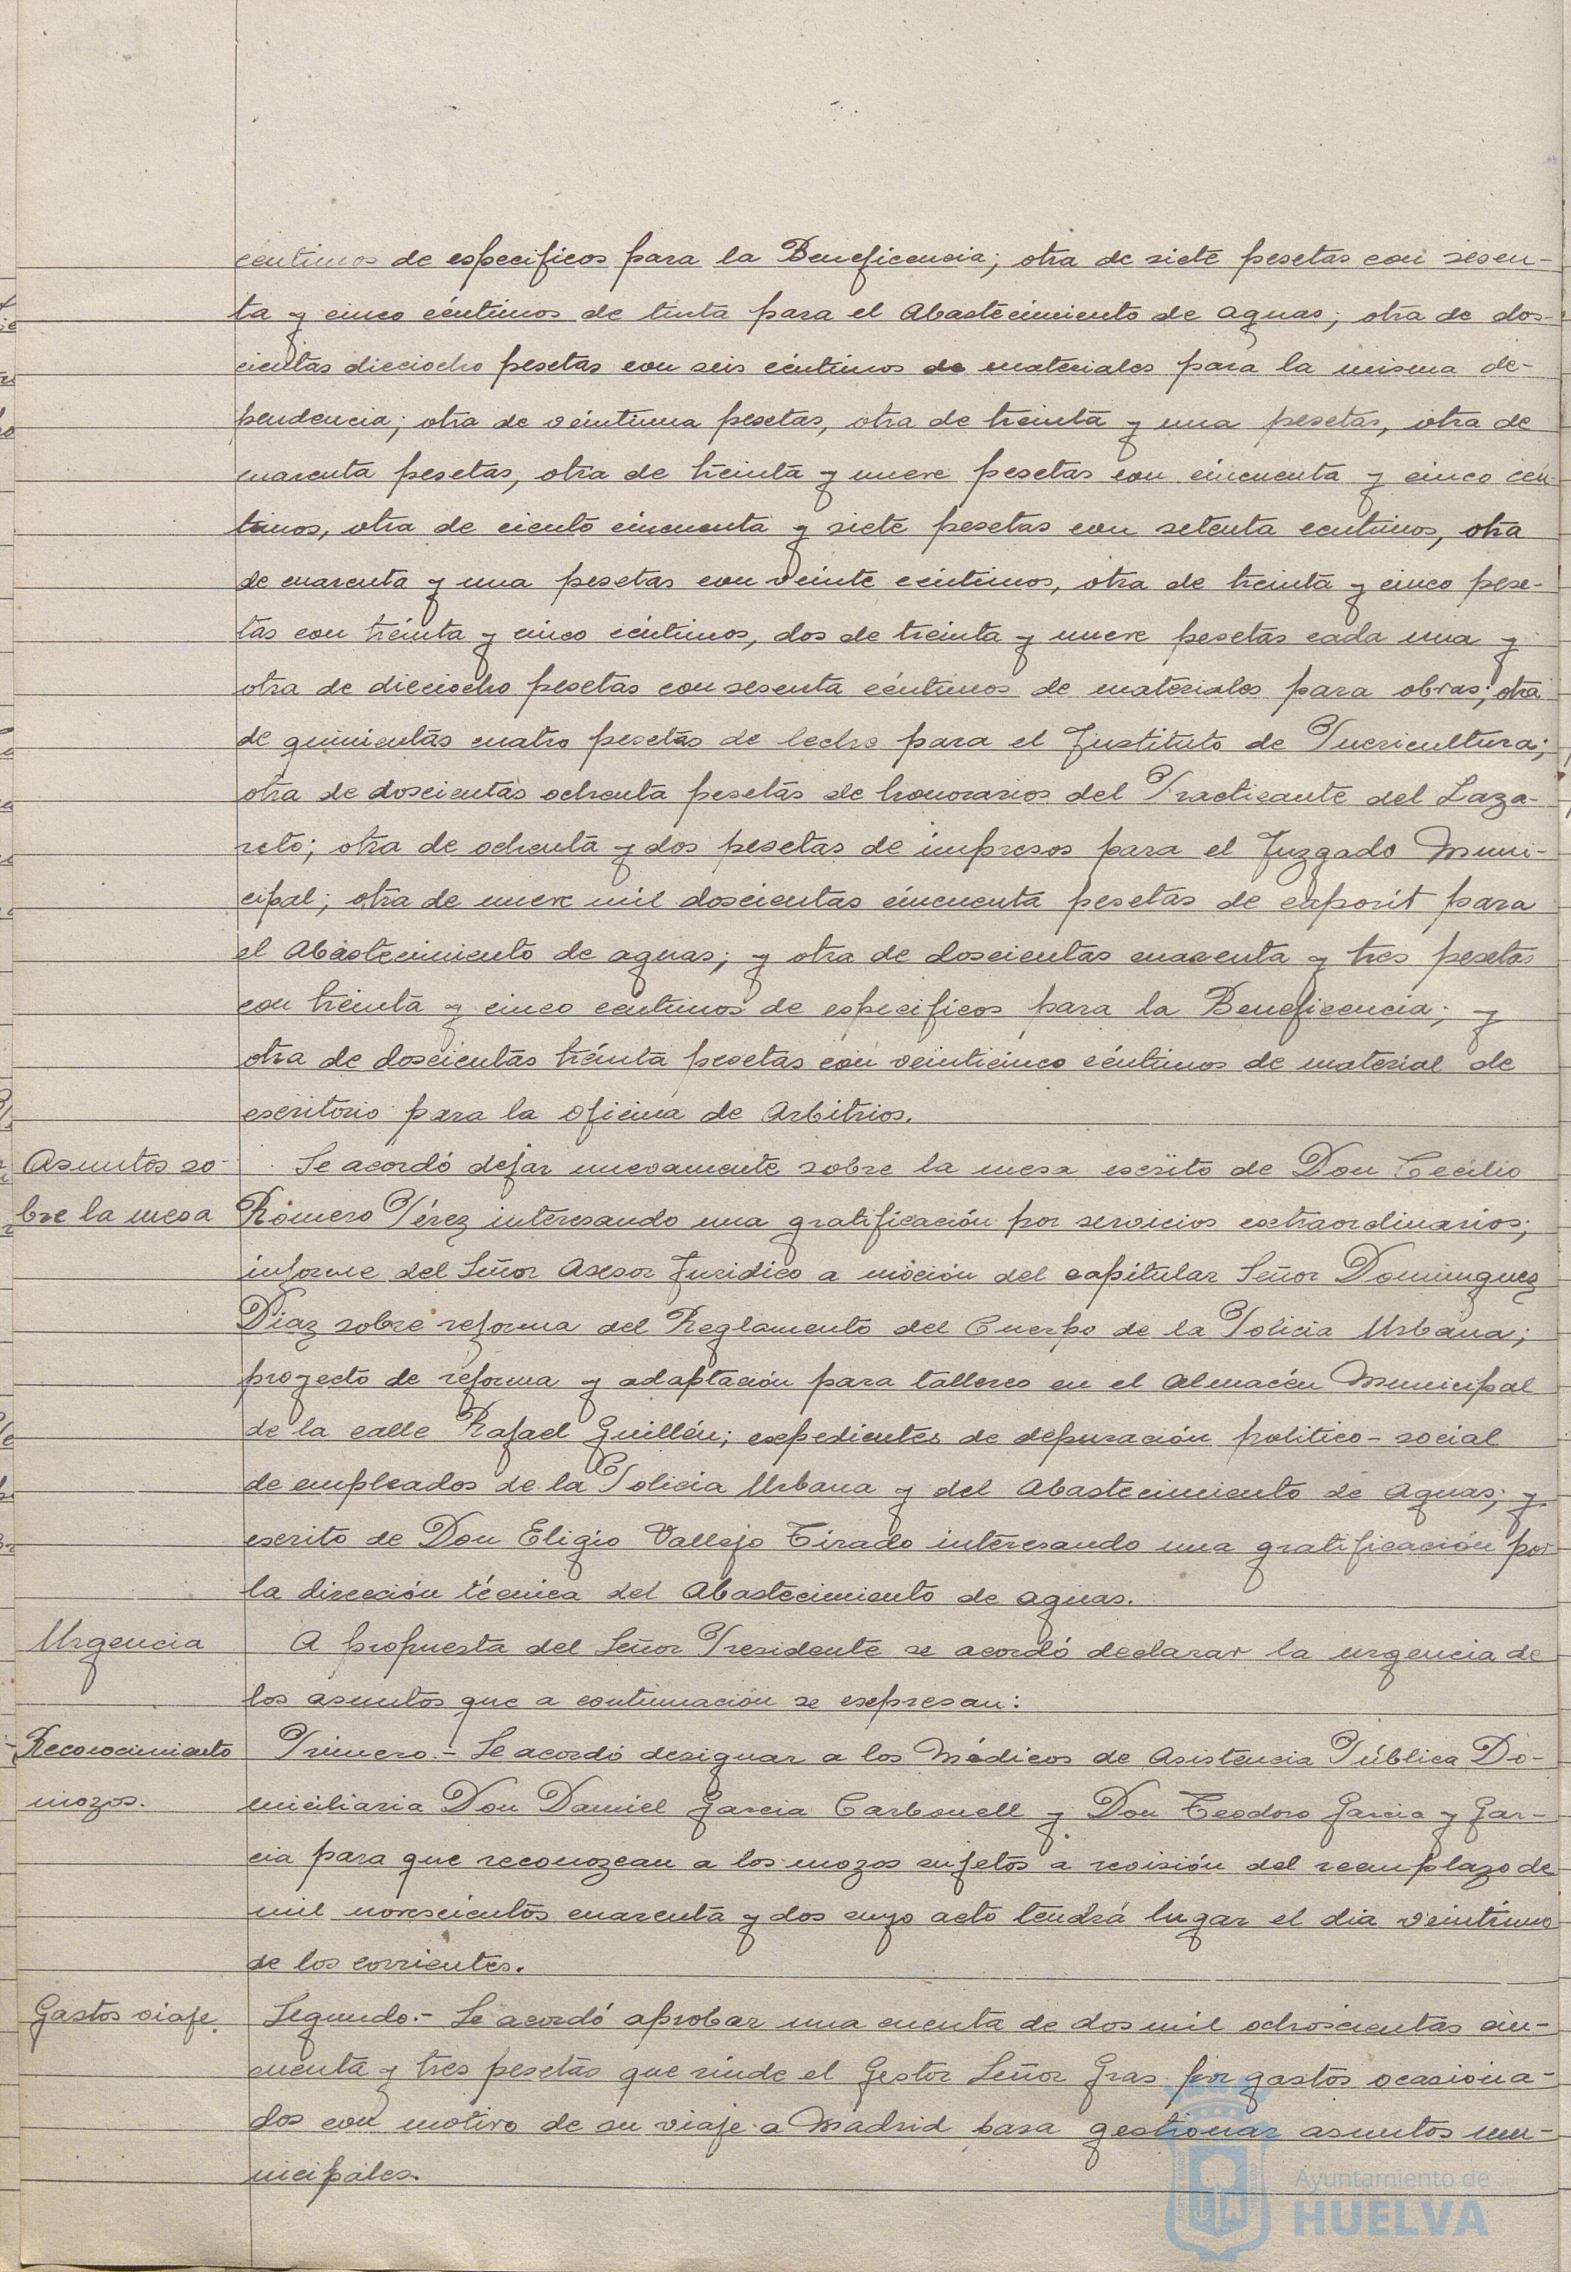 centimos de especificos para la Beneficencia; otra de siete pesetas con sesen-
ta y cinco céntimos de tinta para el Abastecimiento de aguas; otra de dos-
cientas dieciocho pesetas con seis céntimos de materiales para la misma de-
pendencia; otra de veintiuna pesetas, otra de treinta y una pesetas, otra de
cuarenta pesetas, otra de treinta y nueve pesetas con cincuenta y cinco cén-
timos, otra de ciento cincuenta y siete pesetas con setenta centimos, otra
de cuarenta y una pesetas con veinte céntimos, otra de treinta y cinco pese-
tas con treinta y cinco céntimos, dos de treinta y nueve pesetas cada una y
otra de dieciocho pesetas con sesenta céntimos de materiales para obras; otra
de quinientas cuatro pesetas de leche para el Instituto de Puericultura;
otra de doscientas ochenta pesetas de honorarios del Practicante del Laza-
reto; otra de ochenta y dos pesetas de impresos para el Juzgado Muni-
cipal; otra de nueve mil doscientas cincuenta pesetas de exporit para
el Abastecimiento de aguas; y otra de doscientas cuarenta y tres pesetas
con treinta y cinco centimos de especificos para la Beneficencia; y
otra de doscientas treinta pesetas con veinticinco céntimos de material de
escritorio para la oficina de Arbitrios.
Asuntos so-
bre la mesa
Se acordó dejar nuevamente sobre la mesa escrito de Don Cecilio
Romero Pérez interesando una gratificación por servicios extraordinarios;
informe del Señor Asesor Juridico a moción del capitular Señor Dominguez
Diaz sobre reforma del Reglamento del Cuerpo de la Policia Urbana;
proyecto de reforma y adaptación para talleres en el Almacén Municipal
de la calle Rafael Guillén; expedientes de depuración politico-social
de empleados de la Policia Urbana y del Abastecimiento de Aguas; y
escrito de Don Eligio Vallejo Tirado interesando una gratificación por
la dirección técnica del Abastecimiento de aguas.
Urgencia
A propuesta del Señor Presidente se acordó declarar la urgencia de
los asuntos que a continuación se expresan:
Reconocimiento
mozos.
Primero.- Se acordó designar a los Médicos de Asistencia Pública Do-
miciliaria Don Daniel Garcia Carbonell y Don Teodoro Garcia y Gar-
cia para que reconozcan a los mozos sujetos a revisión del reemplazo de
mil novescientos cuarenta y dos cuyo acto tendrá lugar el dia veintiuno
de los corrientes.
Gastos viaje.
Segundo.- Se acordó aprobar una cuenta de dos mil ochoscientas cin-
cuenta y tres pesetas que rinde el Gestor Señor Gras por gastos ocasiona-
dos con motivo de su viaje a Madrid para gestionar asuntos mu-
nicipales.
Ayuntamiento de
HUELVA